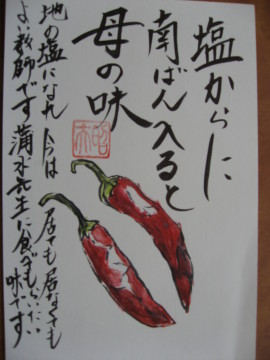 塩からに
南ばん入ると
母の味
地の塩になれ 今は 居ても居なくても
よい教師です 蒲水先生に食べてもらいたい
味です